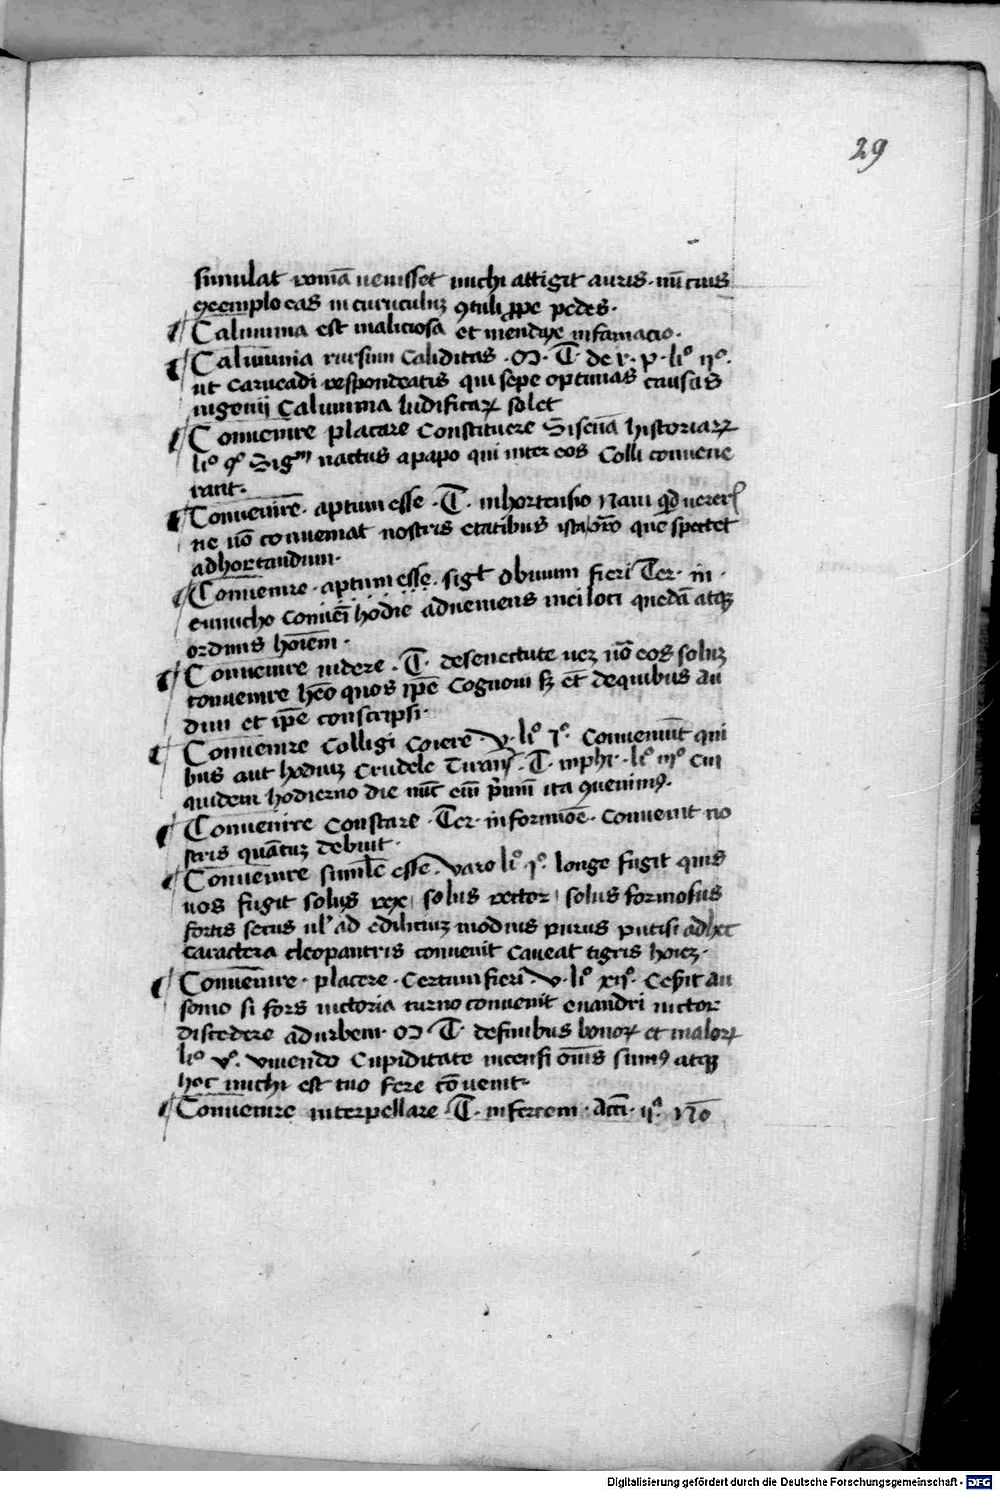 29
simulat romā venisset michi attigit auris · nūcius
exemplo eas in curriculuȝ ꝯtuli ꝓpe pedes ·
Calumnia est maliciosa et mendax infamacio ·
Calumnia rursum caliditas · M · T · de r · p · liº iijº ·
ut carneadi respondeatis qui sepe optimas causas
ingenij Calumnia ludificaꝝ solet
Convenire placare Constituere Sisenā historiaꝝ
liº nactus apapo qui inter eos Colli convene
rant ·
Convenire · aptum esse · T · inhortensio Nam qđ verer
ne nō conveniat nostris etatibus ista orō que spectet
adhortandum ·
Convenire · aptum esse · sigt obvium fieri Ter · in ·
eunucho convēi hodie adveniens mei loci quedā atqȝ
ordinis hoīem ·
Convenire videre · T · desenectute neȝ nō eos soluȝ
convenire heo quos ipē cognovi sȝ et dequibus au
divi et ipē conscripsi ·
Convenire Colligi coiere · v · liº iº · Conveniūt qui
bus aut hodiuȝ crudele tiran · T · inphi · liº iijº cui
quidem hodierno die nūc eni pimū ita ꝯvenimꝰ ·
Convenire constare · Ter · informiōe · convenit no
stris quātuȝ debuit ·
Convenire similē esse · varo liº iº · longe fugit quis
nos fugit solus rex solus rector solus formosus
fortis secus vl' ad ediliciuȝ modius purus putisi adhec
caractera cleopantris convenit Caveat tigris hoieȝ ·
Convenire · placere · certum fieri · v · liº xijº · Cesit au
sonio si fors victoria turno convenit evandri victor
discedere adurbem · M T · definibus bonoꝝ et maloꝝ
liº vº · vivendo Cupiditate incensi oīs sumꝰ atqȝ
hoc michi est tuo fere cōvenit ·
Convenire interpellare · T · infercem · Acti · ijº · Nō
Digitalisierung gefördert durch die Deutsche Forschungsgemeinschaft - DFG